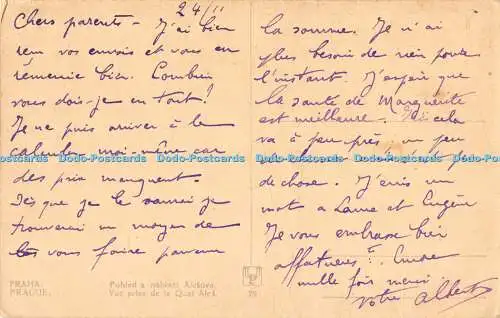 24/11
Chers parents - J'ai bien
reçu vos envois et vous en
remercie bien. Combien
vous dois-je en tout?
Je ne puis arriver à le
calculer moi-même car
des prix manquent.
Dès que je le saurai je
trouverai un moyen de
vous faire parvenir
la somme. Je n'ai
plus besoin de rien pour
l'instant. J'espère que
la santé de Marguerite
est meilleure. Ici cela
va à peu près; un peu
de chose. J'écris un
mot à Laure et Eugène
Je vous embrasse bien
affectueus.t. Encore
mille fois merci
votre Albert
PRAHA.
PRAGUE.
Pohled z nábřeží Alšova.
Vue prise de la Quai Aleš.
79
Dodo-Postcards Dodo-Postcards Dodo-Postcards Dodo-Postcards Dodo-Postcards Dodo-Postcards